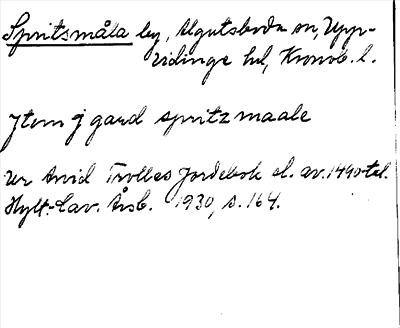 Spritsmåla by, Algutsboda sn, Upp-
vidinge hd, Kronob. l.
Jtem j gard spritz maale
Ur Arvid Trolles Jordebok sl. av. 1490-tal.
Hylt.-Cav. Årsb. 1930, s. 164.